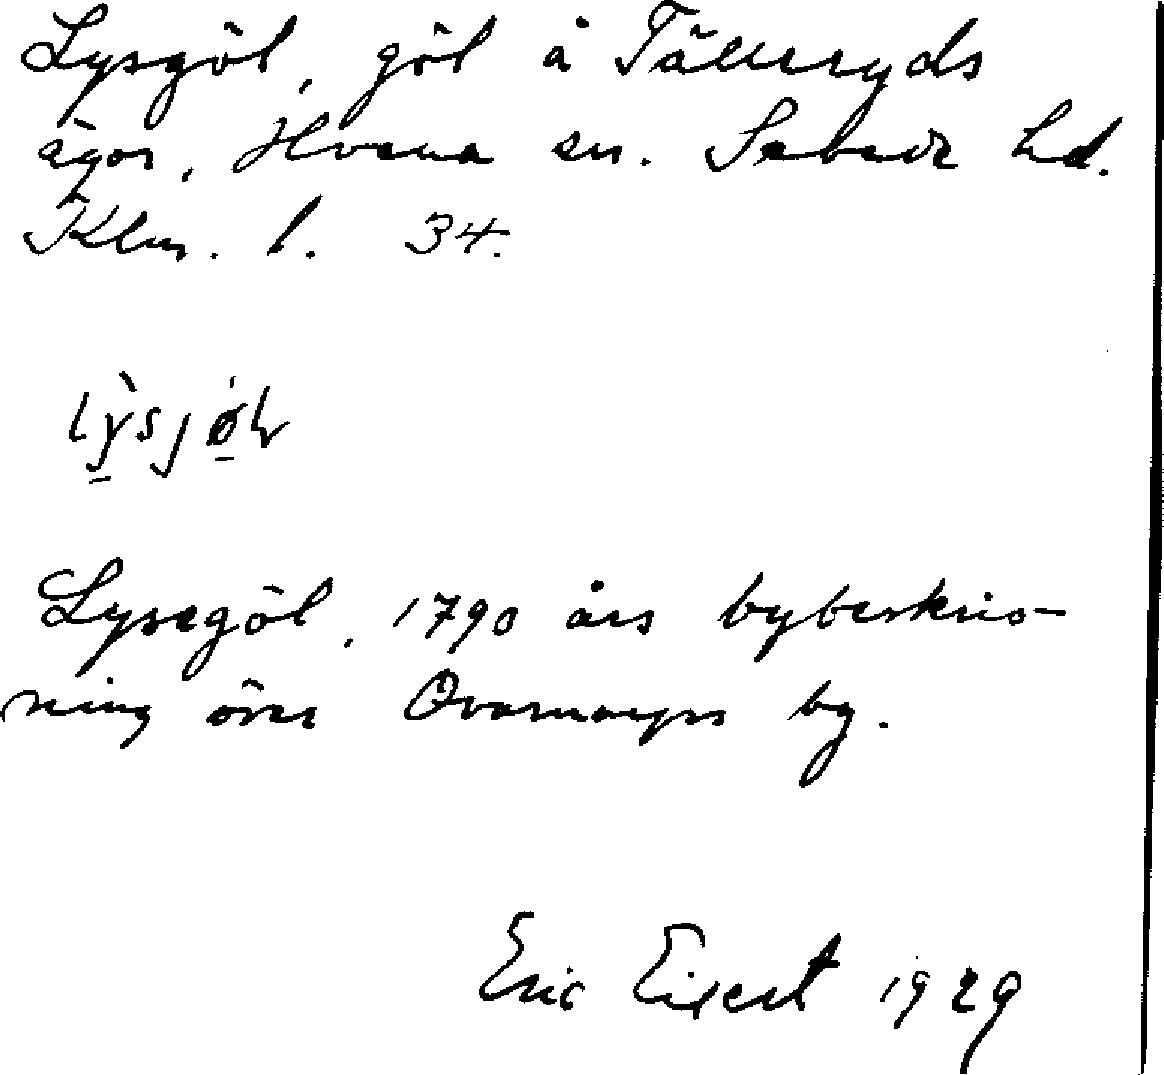 Lysgöl, göl å Tälleryds
ägor, Hvena sn. Sebede hd.
Klm. l. 34.
Lysegöl, 1790 års bybeskriv-
ning över by.
Eric Eixert 1929